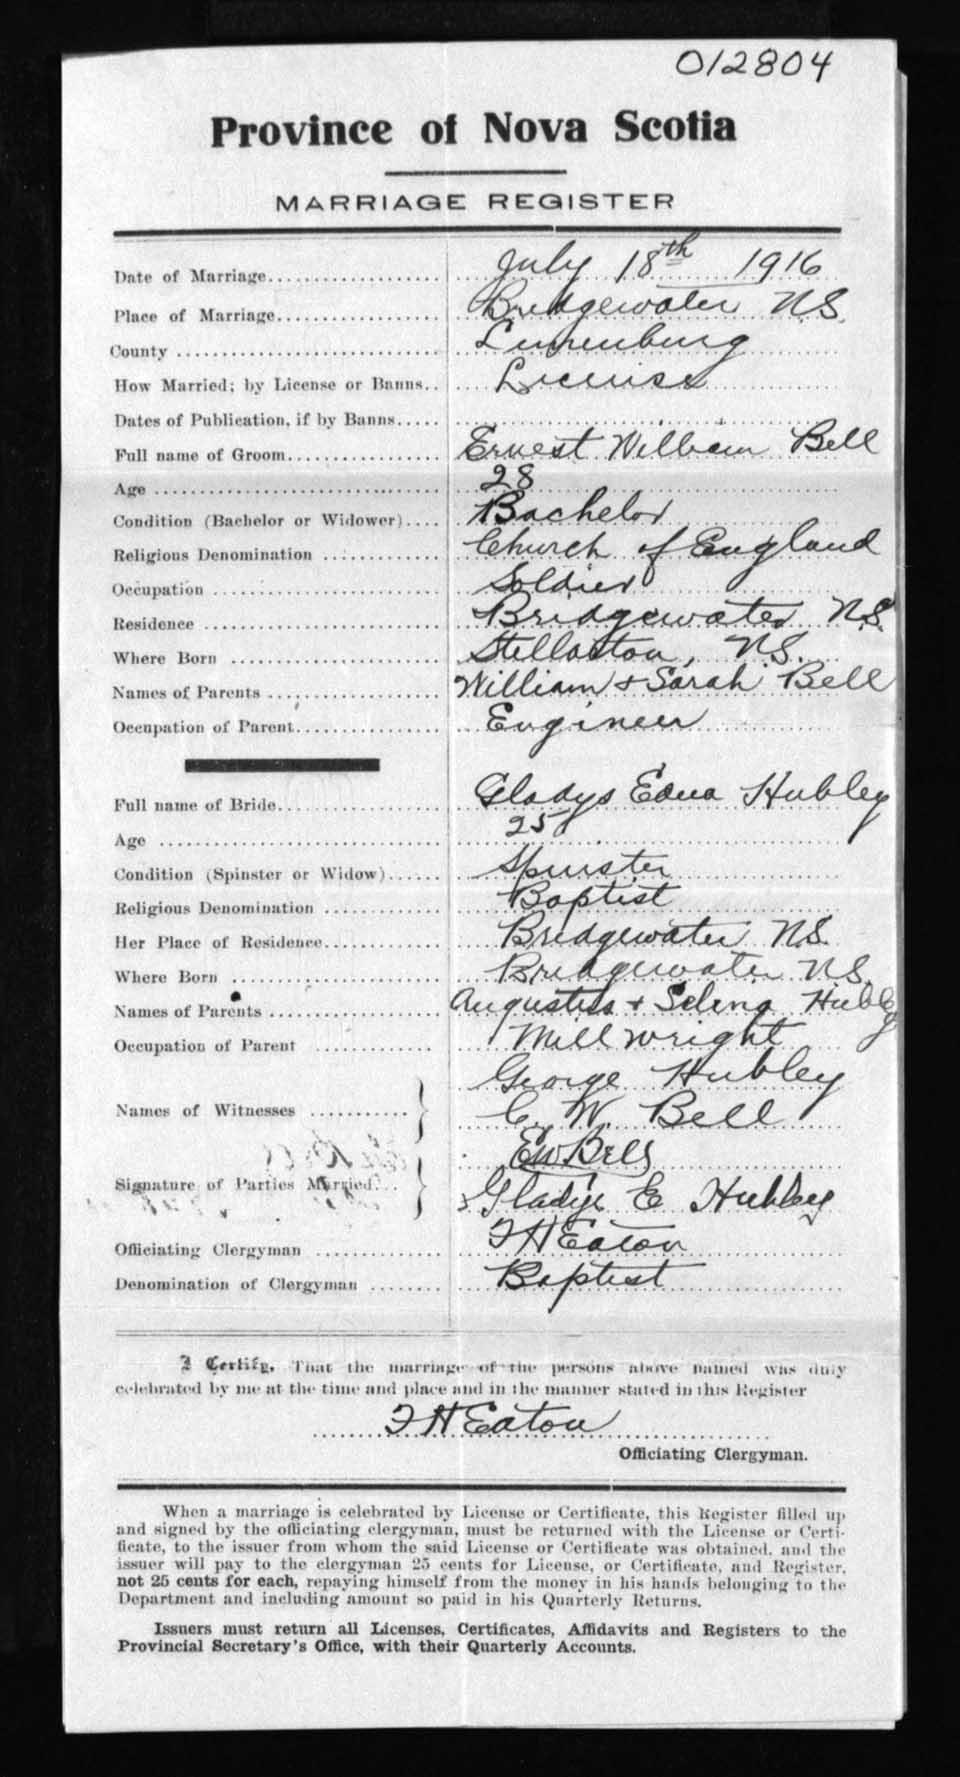 012804
Province of Nova Scotia
MARRIAGE REGISTER
Date of Marriage July 18th 1916
Place of Marriage Bridgewater N.S.
County Lunenburg
How Married; by License or Banns License
Dates of Publication, if by Banns
Full name of Groom Ernest William Bell
Age 28
Condition (Bachelor or Widower) Bachelor
Religious Denomination Church of England
Occupation Soldier
Residence Bridgewater N.S.
Where Born Stellarton, N.S.
Names of Parents William & Sarah Bell
Occupation of Parent Engineer
Full name of Bride Gladys Edna Hubley
Age 25
Condition (Spinster or Widow) Spinster
Religious Denomination Baptist
Her Place of Residence Bridgewater N.S.
Where Born Bridgewater N.S.
Names of Parents Augustus & Selena Hubley
Occupation of Parent Millwright
George Hubley
Names of Witnesses C. W. Bell
EW Bell
Signature of Parties Married
Gladys E Hubley
Officiating Clergyman F H Eaton
Denomination of Clergyman Baptist
I Certify, That the marriage of the persons above named was duly
celebrated by me at the time and place and in the manner stated in this Register
F H Eaton
Officiating Clergyman.
When a marriage is celebrated by License or Certificate, this Register filled up
and signed by the officiating clergyman, must be returned with the License or Certi-
ficate, to the issuer from whom the said License or Certificate was obtained, and the
issuer will pay to the clergyman 25 cents for License, or Certificate, and Register,
not 25 cents for each, repaying himself from the money in his hands belonging to the
Department and including amount so paid in his Quarterly Returns.
Issuers must return all Licenses, Certificates, Affidavits and Registers to the
Provincial Secretary's Office, with their Quarterly Accounts.